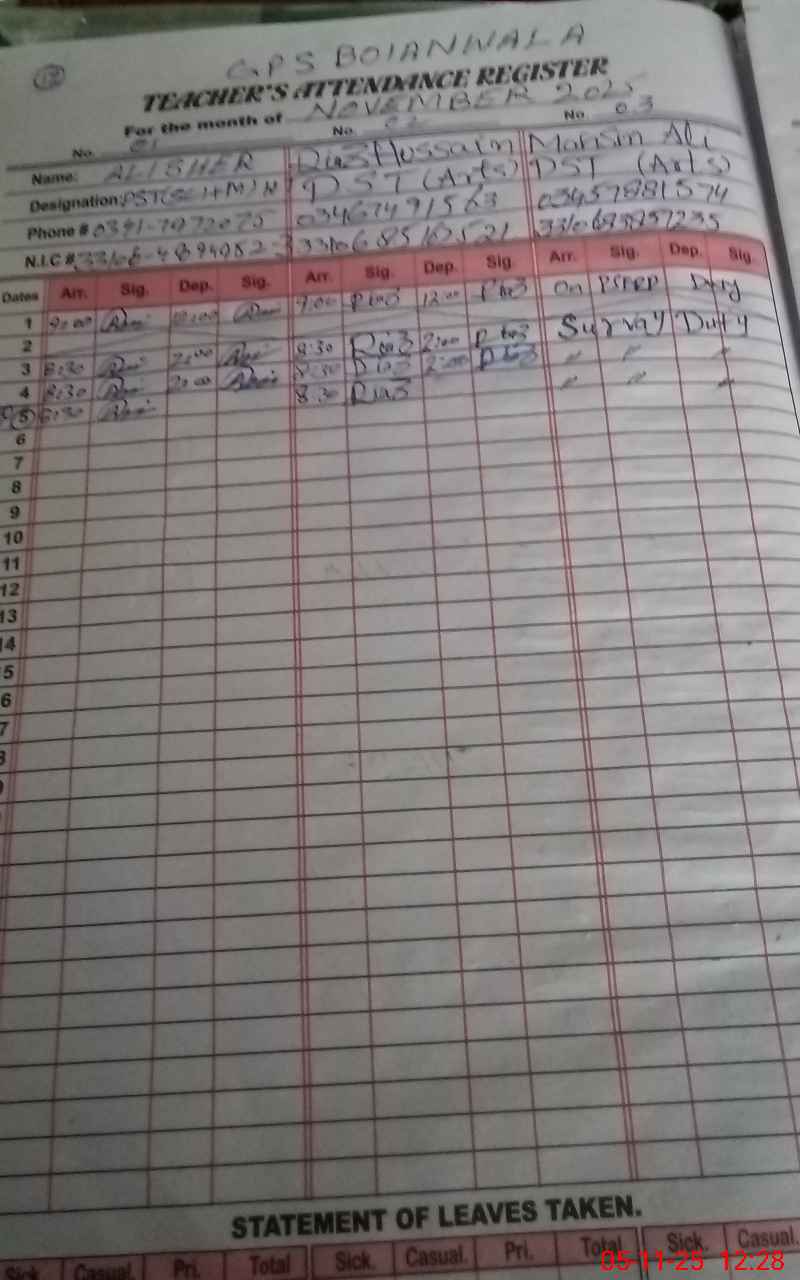 GPS BOIANWALA
TEACHER'S ATTENDANCE REGISTER
For the month of NOVEMBER 2025
No. 01 No. 02 No. 03
Name: ALI SHER Riaz Hussain Mohsin Ali
Designation: PST (Arts) PST (Arts)
Phone # 0341-7972075 03467491563 03457881574
N.I.C #
Dates Arr. Sig. Dep. Sig. Arr. Sig. Dep. Sig. Arr. Sig. Dep. Sig.
1 9:00 12:00 9:00 Riaz 12:00 Riaz On Duty
2
3 8:30 2:00 8:30 Riaz 2:00 Riaz Survay Duty
4 8:30 2:00 8:30 Riaz 2:00 Riaz " " "
5 8:30 8:30 Riaz " " "
6
7
8
9
10
11
12
13
14
5
6
7
STATEMENT OF LEAVES TAKEN.
Sick. Casual. Pri. Total Sick. Casual. Pri. Total Sick. Casual.
05-11-25 12:28